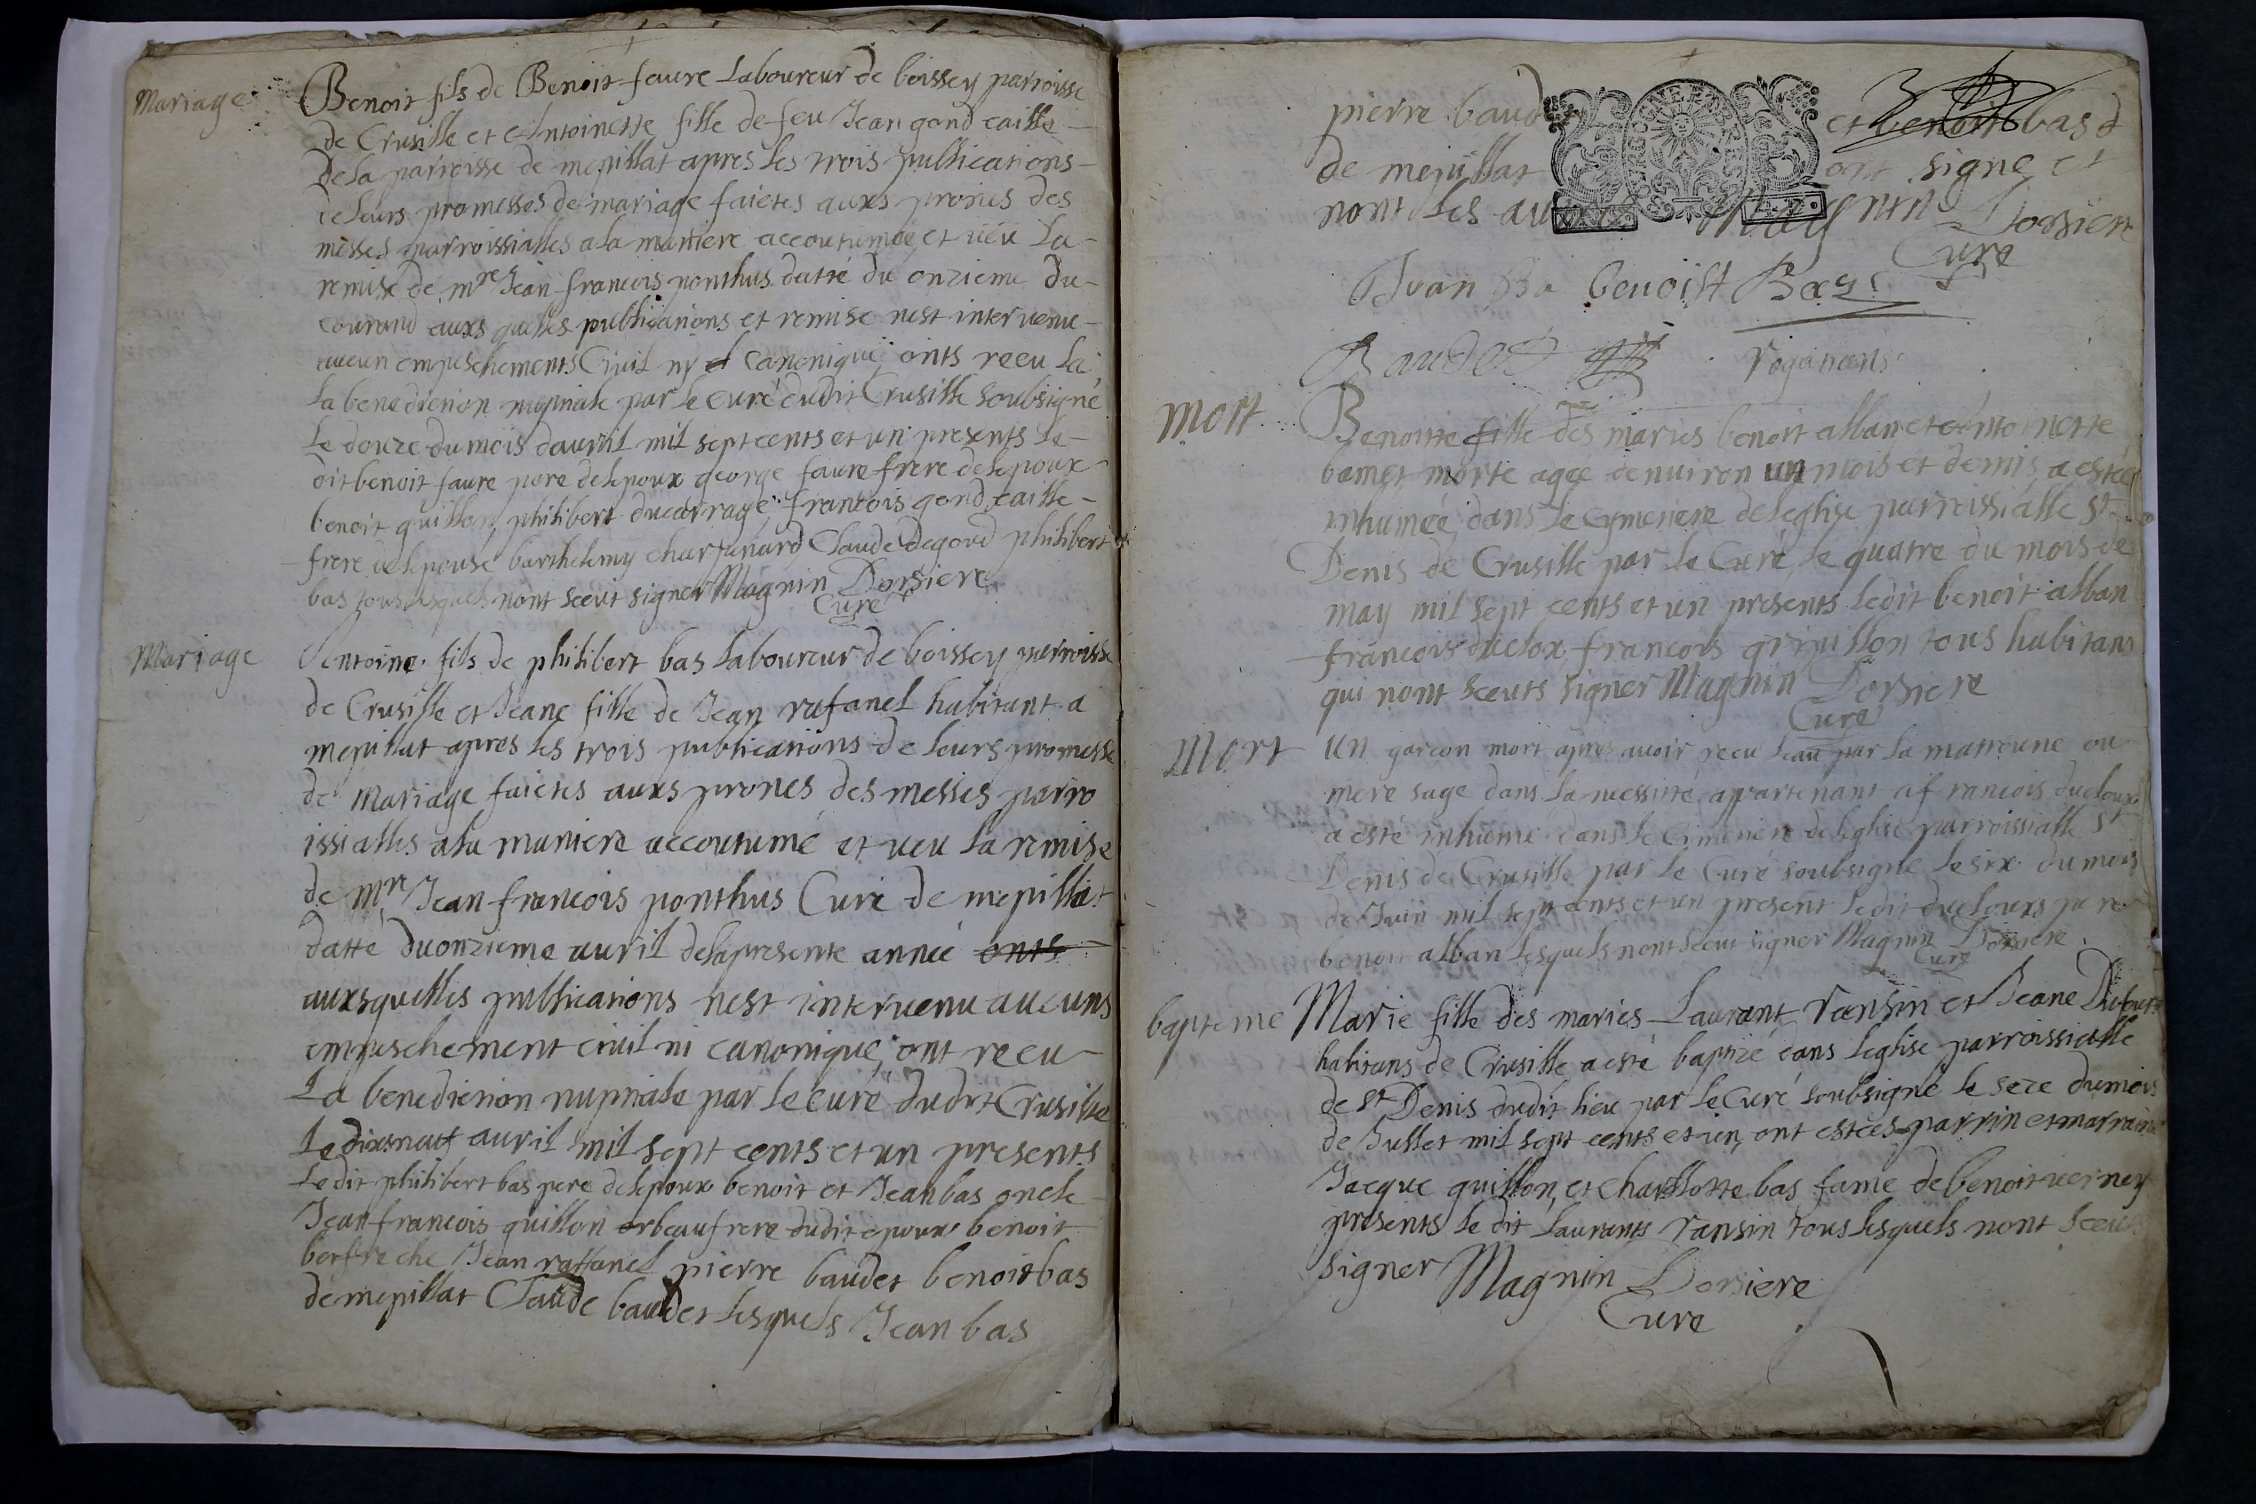 Mariage
Benoit fils de Benoit faure Laboureur de boissey parroisse
de Crusille et Antoinette fille de feu Jean gond caille
de la parroisse de mepillat apres les trois publications
de leurs promesses de mariage faictes auxs prones des
messes parroissialles a la maniere accoutumée, et veu La
remise de mre Jean francois ponthus datté du onzieme du
courand auxs quelles publications et remise nest intervenu
aucun empeschements Civil ny Canonique, onts receu la
la benediction nuptiale par le Curé dudit Crusille soubsigné
Le douze du mois davril mil sept cents et un presents le
dit benoit faure pere delepoux george faure frere delepoux
benoit guillon, philibert ducarrage francois gond caille
frere delepouse barthelemy charpunard Claude degord philibert
bas tous lesquels nont sceut signer Magnin Dorsiere
Curé
Mariage
Antoine fils de philibert bas Laboureur de boissey parroisse
de Crusille et Jeane fille de Jean rafanel habitant a
mepillat apres les trois publications de leurs promesse
de mariage faictes auxs prones des messes parro
issialles ala maniere accoutumé et veu la remise
de mre Jean francois ponthus Curé de mepillat
datté duonzieme avril delapresente année onts
auxsquelles publications nest intervenu aucuns
empeschement civil ni canonique, ont receu
La benediction nuptiale par le curé dudit Crusille
Le dixsneuf avril mil sept cents et un presents
Ledit philibert bas pere delepoux benoit et Jean bas oncle
Jean francois guillon beaufrere dudit epoux benoit
Jean raffanel pierre baudet benoit bas
de mepillat Claude baudet lesquels Jean bas
pierre baudet et benoit bas d
de mepillat ont signe et
nont les autres Magnin Dorsiere
Curé
Jvan Ba benoist Bas
Baudet
mort
Benoitte fille des maries benoit alban et Antoinette
bamet morte agée denviron un mois et demis a estée
inhumée dans le cymetiere deleglise parroissialle St
Denis de Crusille par le Curé, le quatre du mois de
may mil sept cents et un presents ledit benoit alban
francois duclox francois gripillon tous habitans
qui nont sceuts signer Magnin Dorsiere
Curé
Mort
Un garcon mort apres avoir receu leau par la matroune ou
mere sage dans la nessitté apartenant a francois ducloux
a esté inhume dans le Cimetiere deleglise parroissialle St
Denis de Crusille par le Curé soubsigné le six du mois
de Juin mil sept cents et un present ledit ducloux pere
benoit alban lesquels nont sceut signer Magnin Dorsiere
Curé
bapteme
Marie fille des maries Laurant ransin et Jeane Dufour
habitans de Crusille a esté baptizé dans leglise parroissialle
de St Denis dudit lieu par le Curé soubsigné le seze dumois
de Jullet mil sept cents et un, ont estées parrin et marraine
Jacque guillon, et charllotte bas fame de benoit verney
presents le dit Laurants ransin tous lesquels nont sceut
signer Magnin Dorsiere
Curé